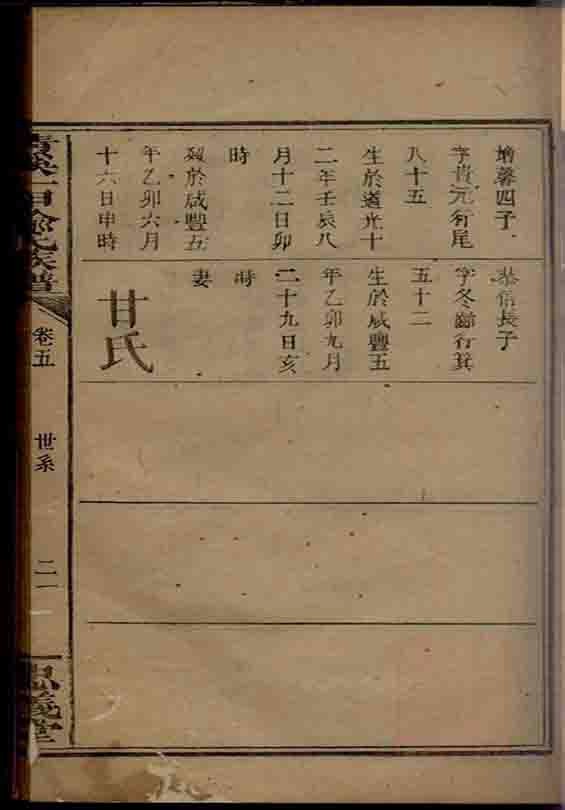 增馨四子
字貴元行尾
八十五
生於道光十
二年壬辰八
月十二日卯
時
歿於咸豐五
年乙卯六月
十六日申時
恭信長子
字冬齡行箕
五十二
生於咸豐五
年乙卯九月
二十九日亥
時
妻
甘氏
氏族譜
卷五
世系
二一
忠義堂